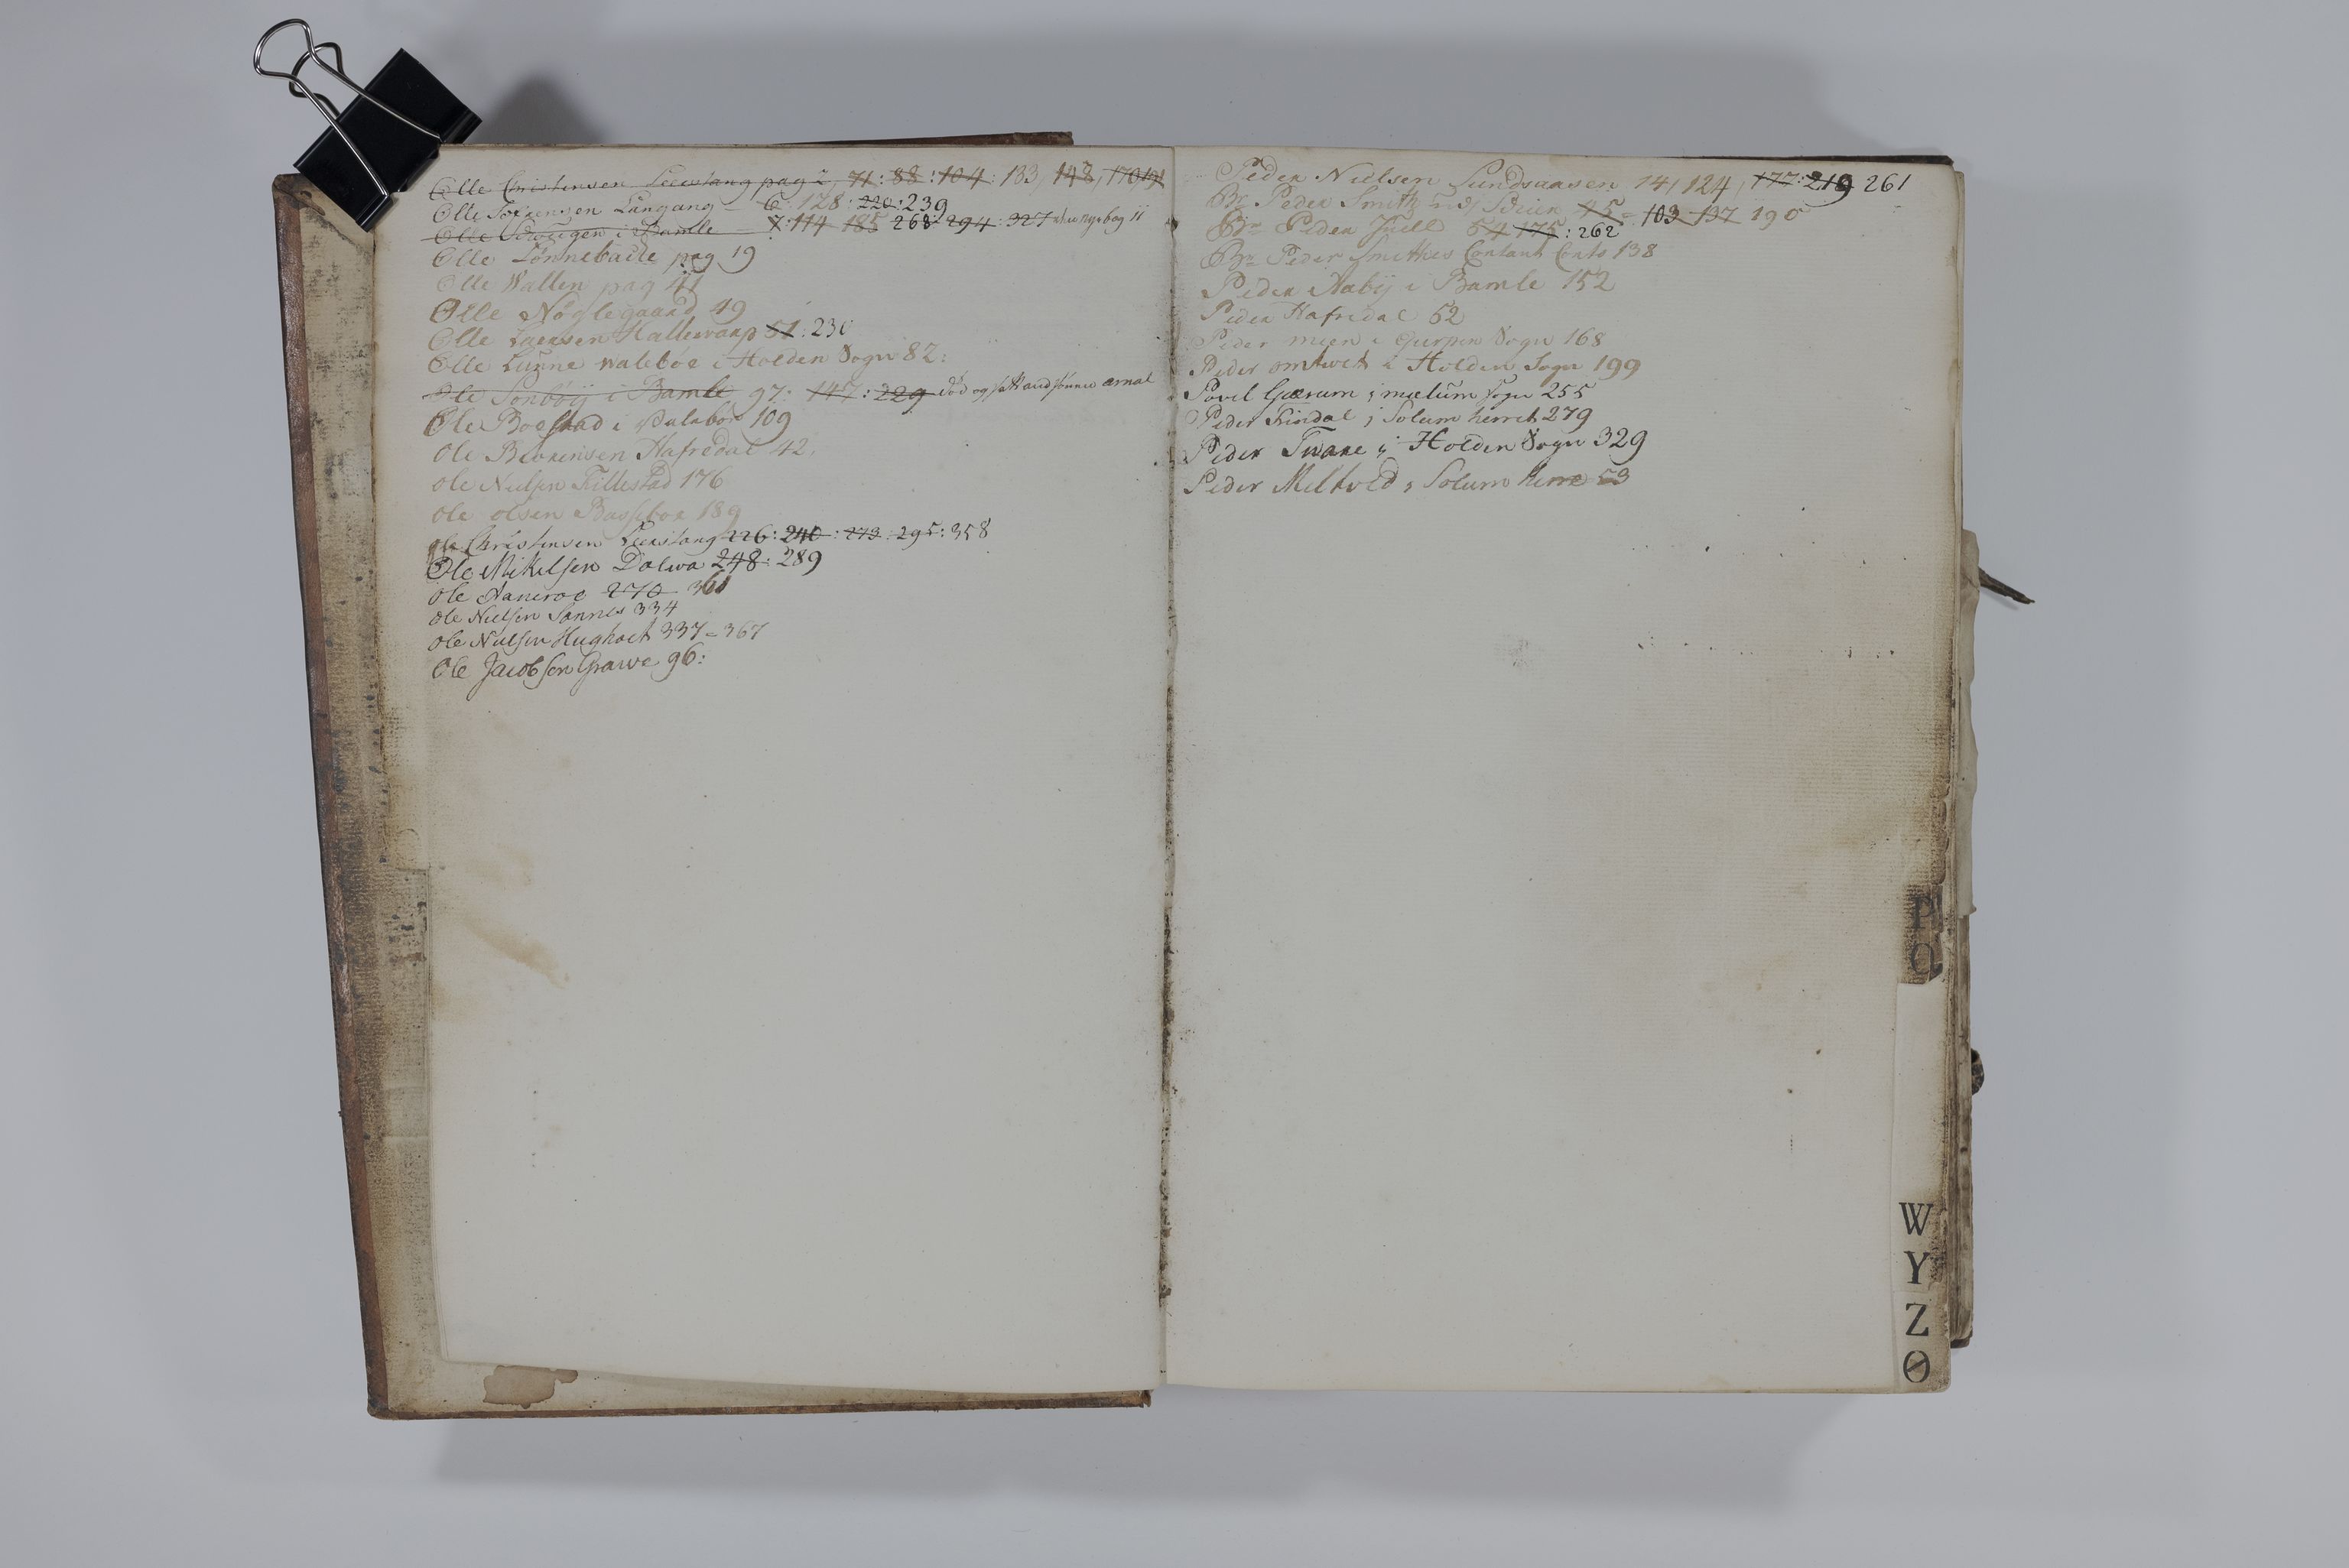 Olle Christensen Leerstang pag 2, 71: 88: 104: 133, 148, 170
Olle Langang - 6: 128: 220: 239
Olle i Bamle 7: 114 185 268 294: 327 bog 11
Olle Lønnebacke pag 19
Olle Wallen pag 41
Olle Nøglegaard 49
Olle Larssen Hallevarp 51: 230
Olle Lunne walebøe i Holden Sogn 82:
Ole Sonbøij i Bamle 97: 147: 229 død og
Ole Boestad i 109
Ole Hafredal 42,
Ole Nielsen Fillestad 176
Ole Olsen Basseboe 189
Ole Christensen Leerstang 226: 240: 273: 295: 358
Ole Mikelsen Dalwa 248: 289
Ole 270 361
Ole Nielsen Sannes 334
Ole Nielsen Hugholt 337 = 367
Ole Jacobsen Grawe 96:
Peder Nielsen Sundsaasen 14, 124, 177: 219 261
Br Peder Smith 45 = 103 137 190
Br Peder Juell 54 175: 262
Br Peder Smithes Contant Conto 138
Peder Nabij i Bamle 152
Peder Hafredal 52
Peder i Gierpen Sogn 168
Peder omtvet i Holden Sogn 199
Povil Gierum i mælum Sogn 255
Peder i Solum herret 279
Peder Tvare i Holden Sogn 329
Peder Meltved i Solum 53
P
Q
W
Y
Z
Ø